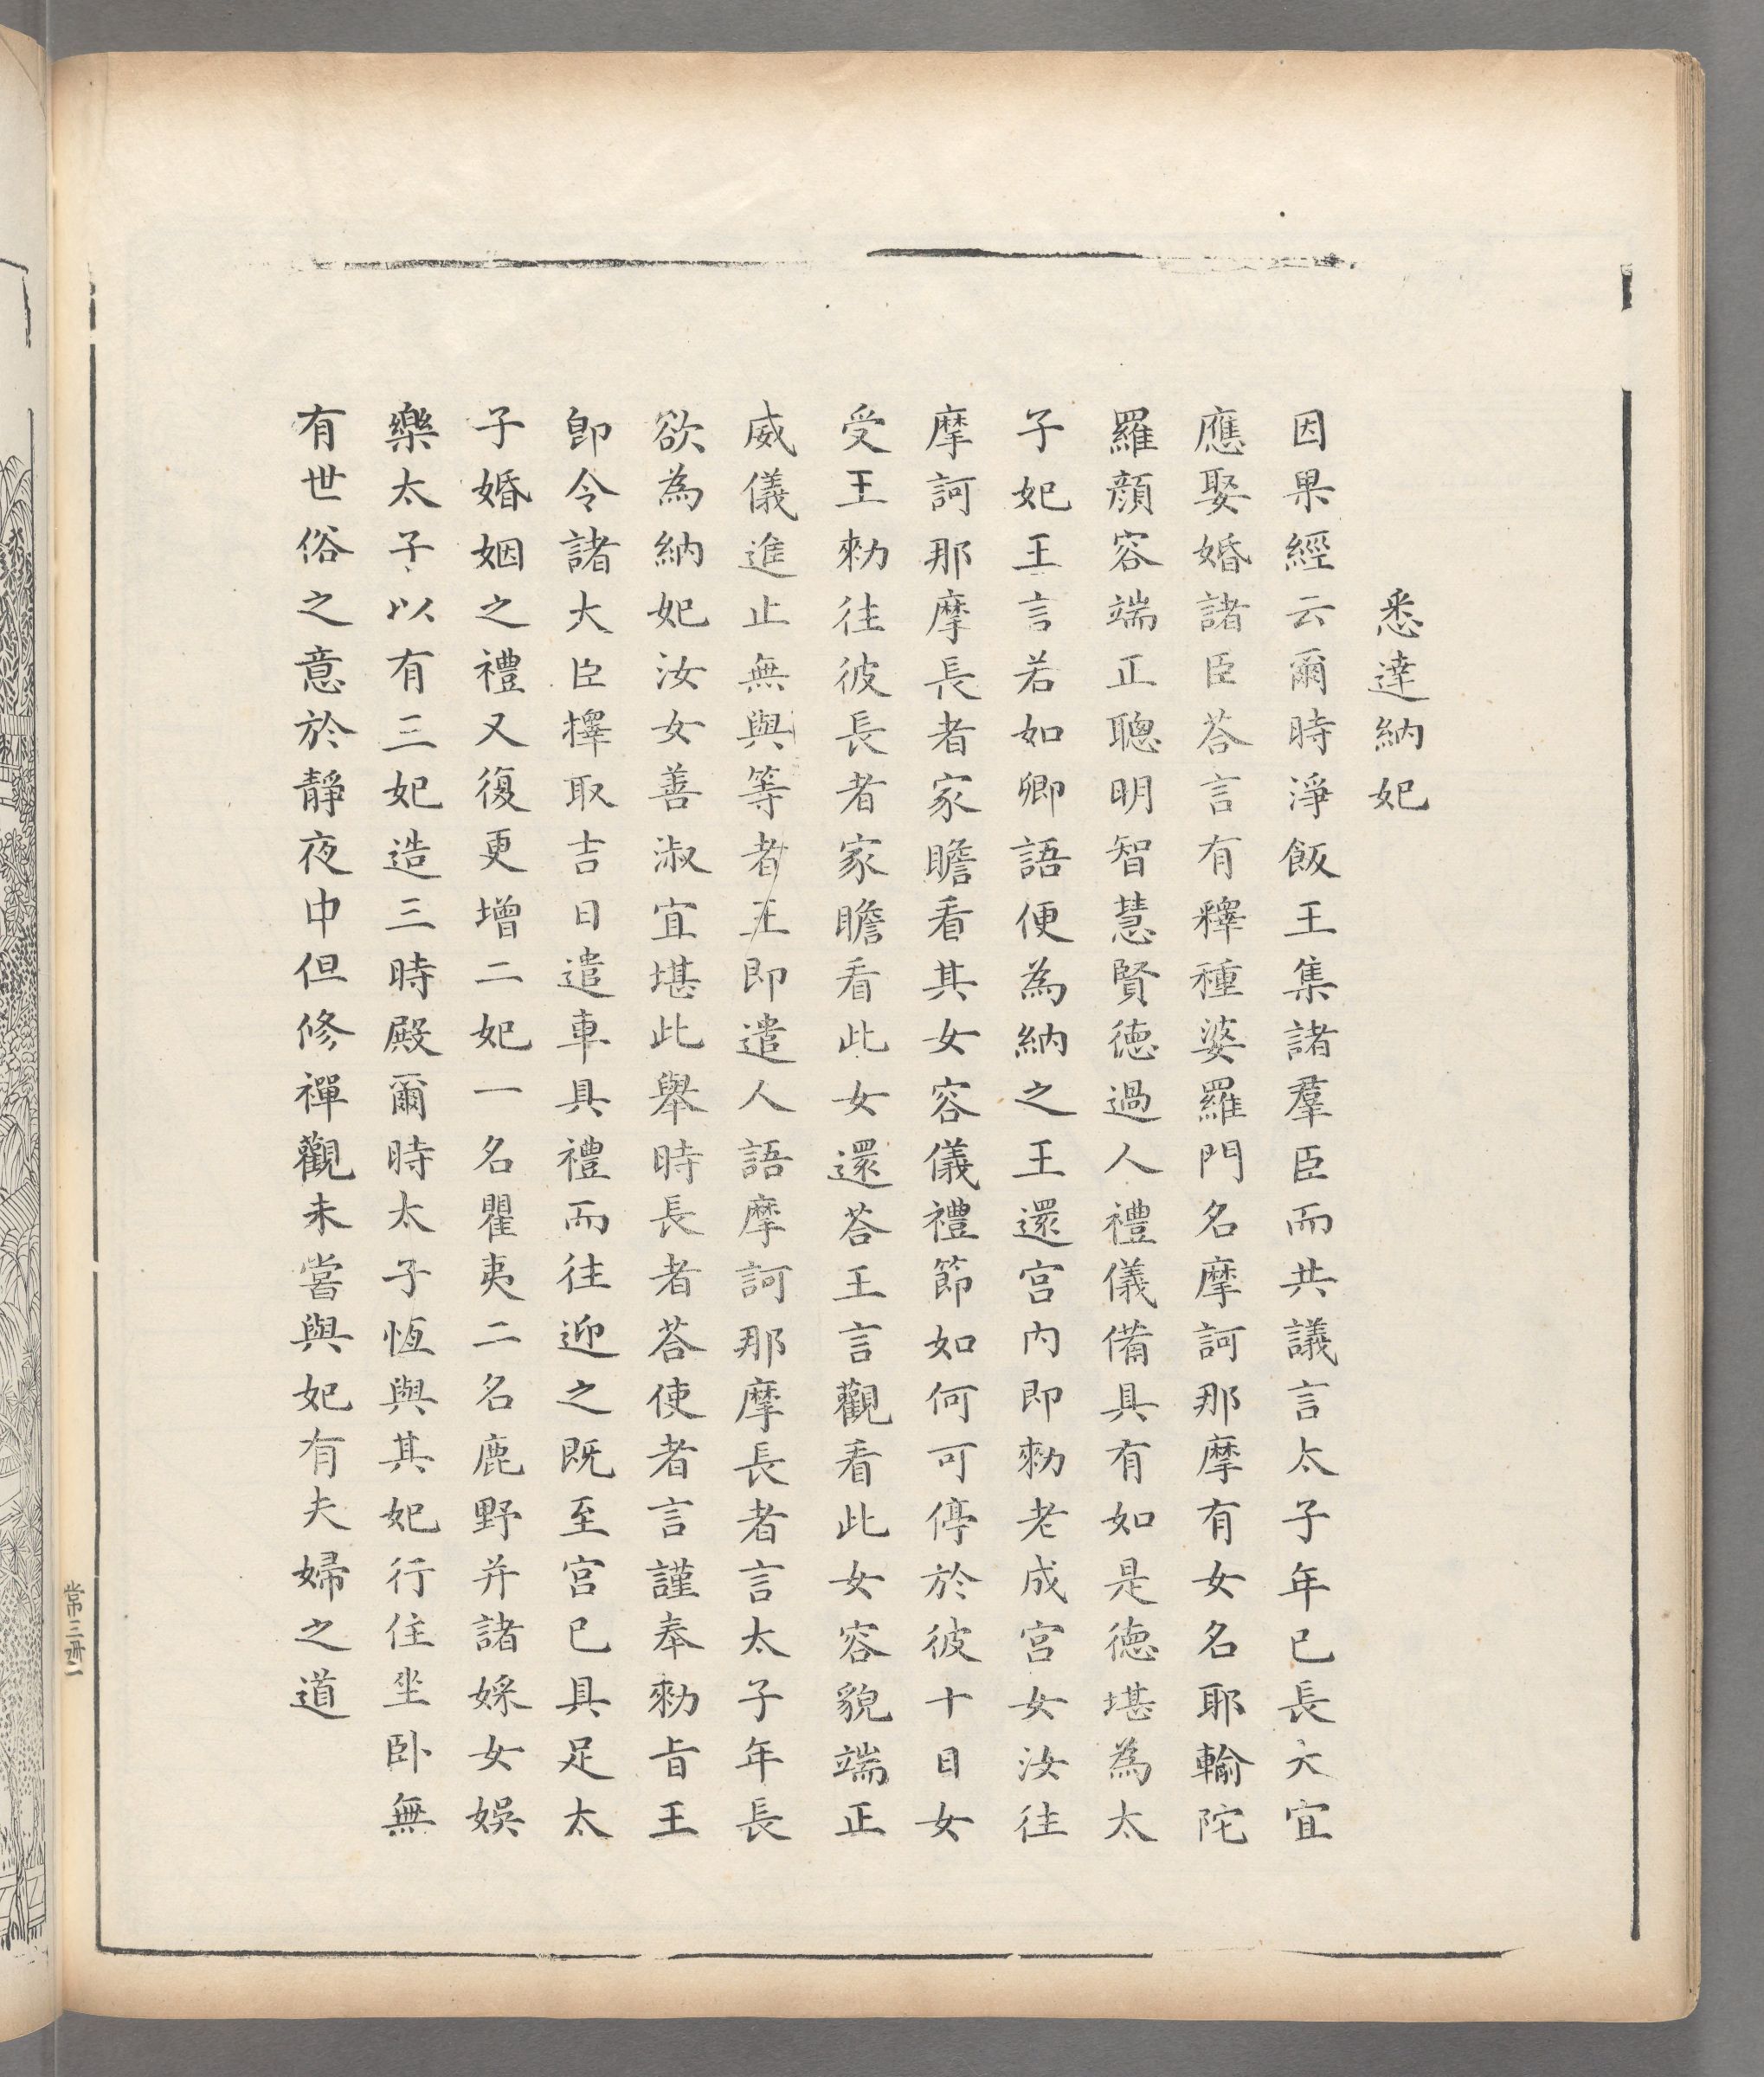 悉達納妃
因果經云爾時淨飯王集諸羣臣而共議言太子年已長大宜
應娶婚諸臣荅言有釋種婆羅門名摩訶那摩有女名耶輸陀
羅顏容端正聰明智慧賢德過人禮儀備具有如是德堪為太
子妃王言若如卿語便為納之王還宮内即勑老成宮女汝往
摩訶那摩長者家瞻看其女容儀禮節如何可停於彼十日女
受王勑往彼長者家瞻看此女還荅王言觀看此女容貌端正
威儀進止無與等者王即遣人語摩訶那摩長者言太子年長
欲為納妃汝女善淑宜堪此舉時長者荅使者言謹奉勑旨王
即令諸大臣擇取吉日遣車具禮而往迎之既至宮已具足太
子婚姻之禮又復更增二妃一名瞿夷二名鹿野并諸婇女娛
樂太子以有三妃造三時殿爾時太子恆與其妃行住坐卧無
有世俗之意於靜夜中但修禪觀未嘗與妃有夫婦之道
常三冊二